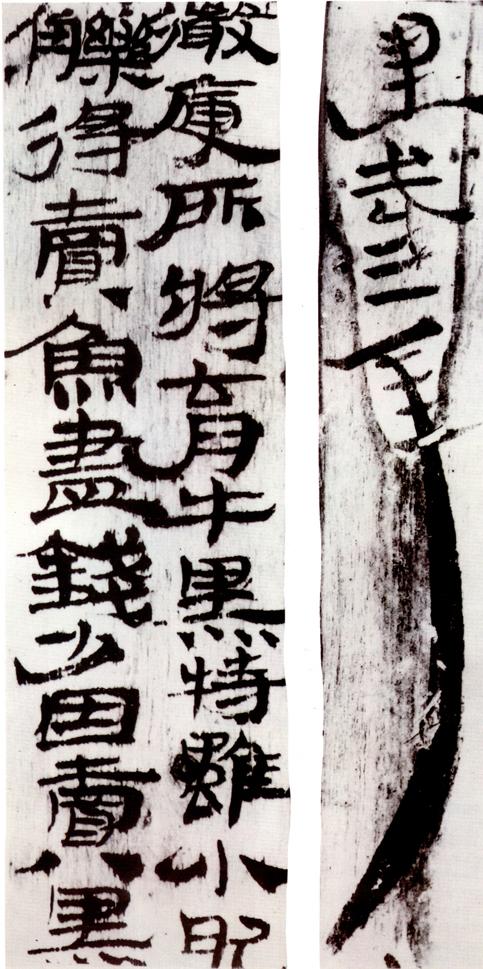 建武三年
微庾所將育牛黑特雖小肥
觻得賣魚盡錢少因賣黑